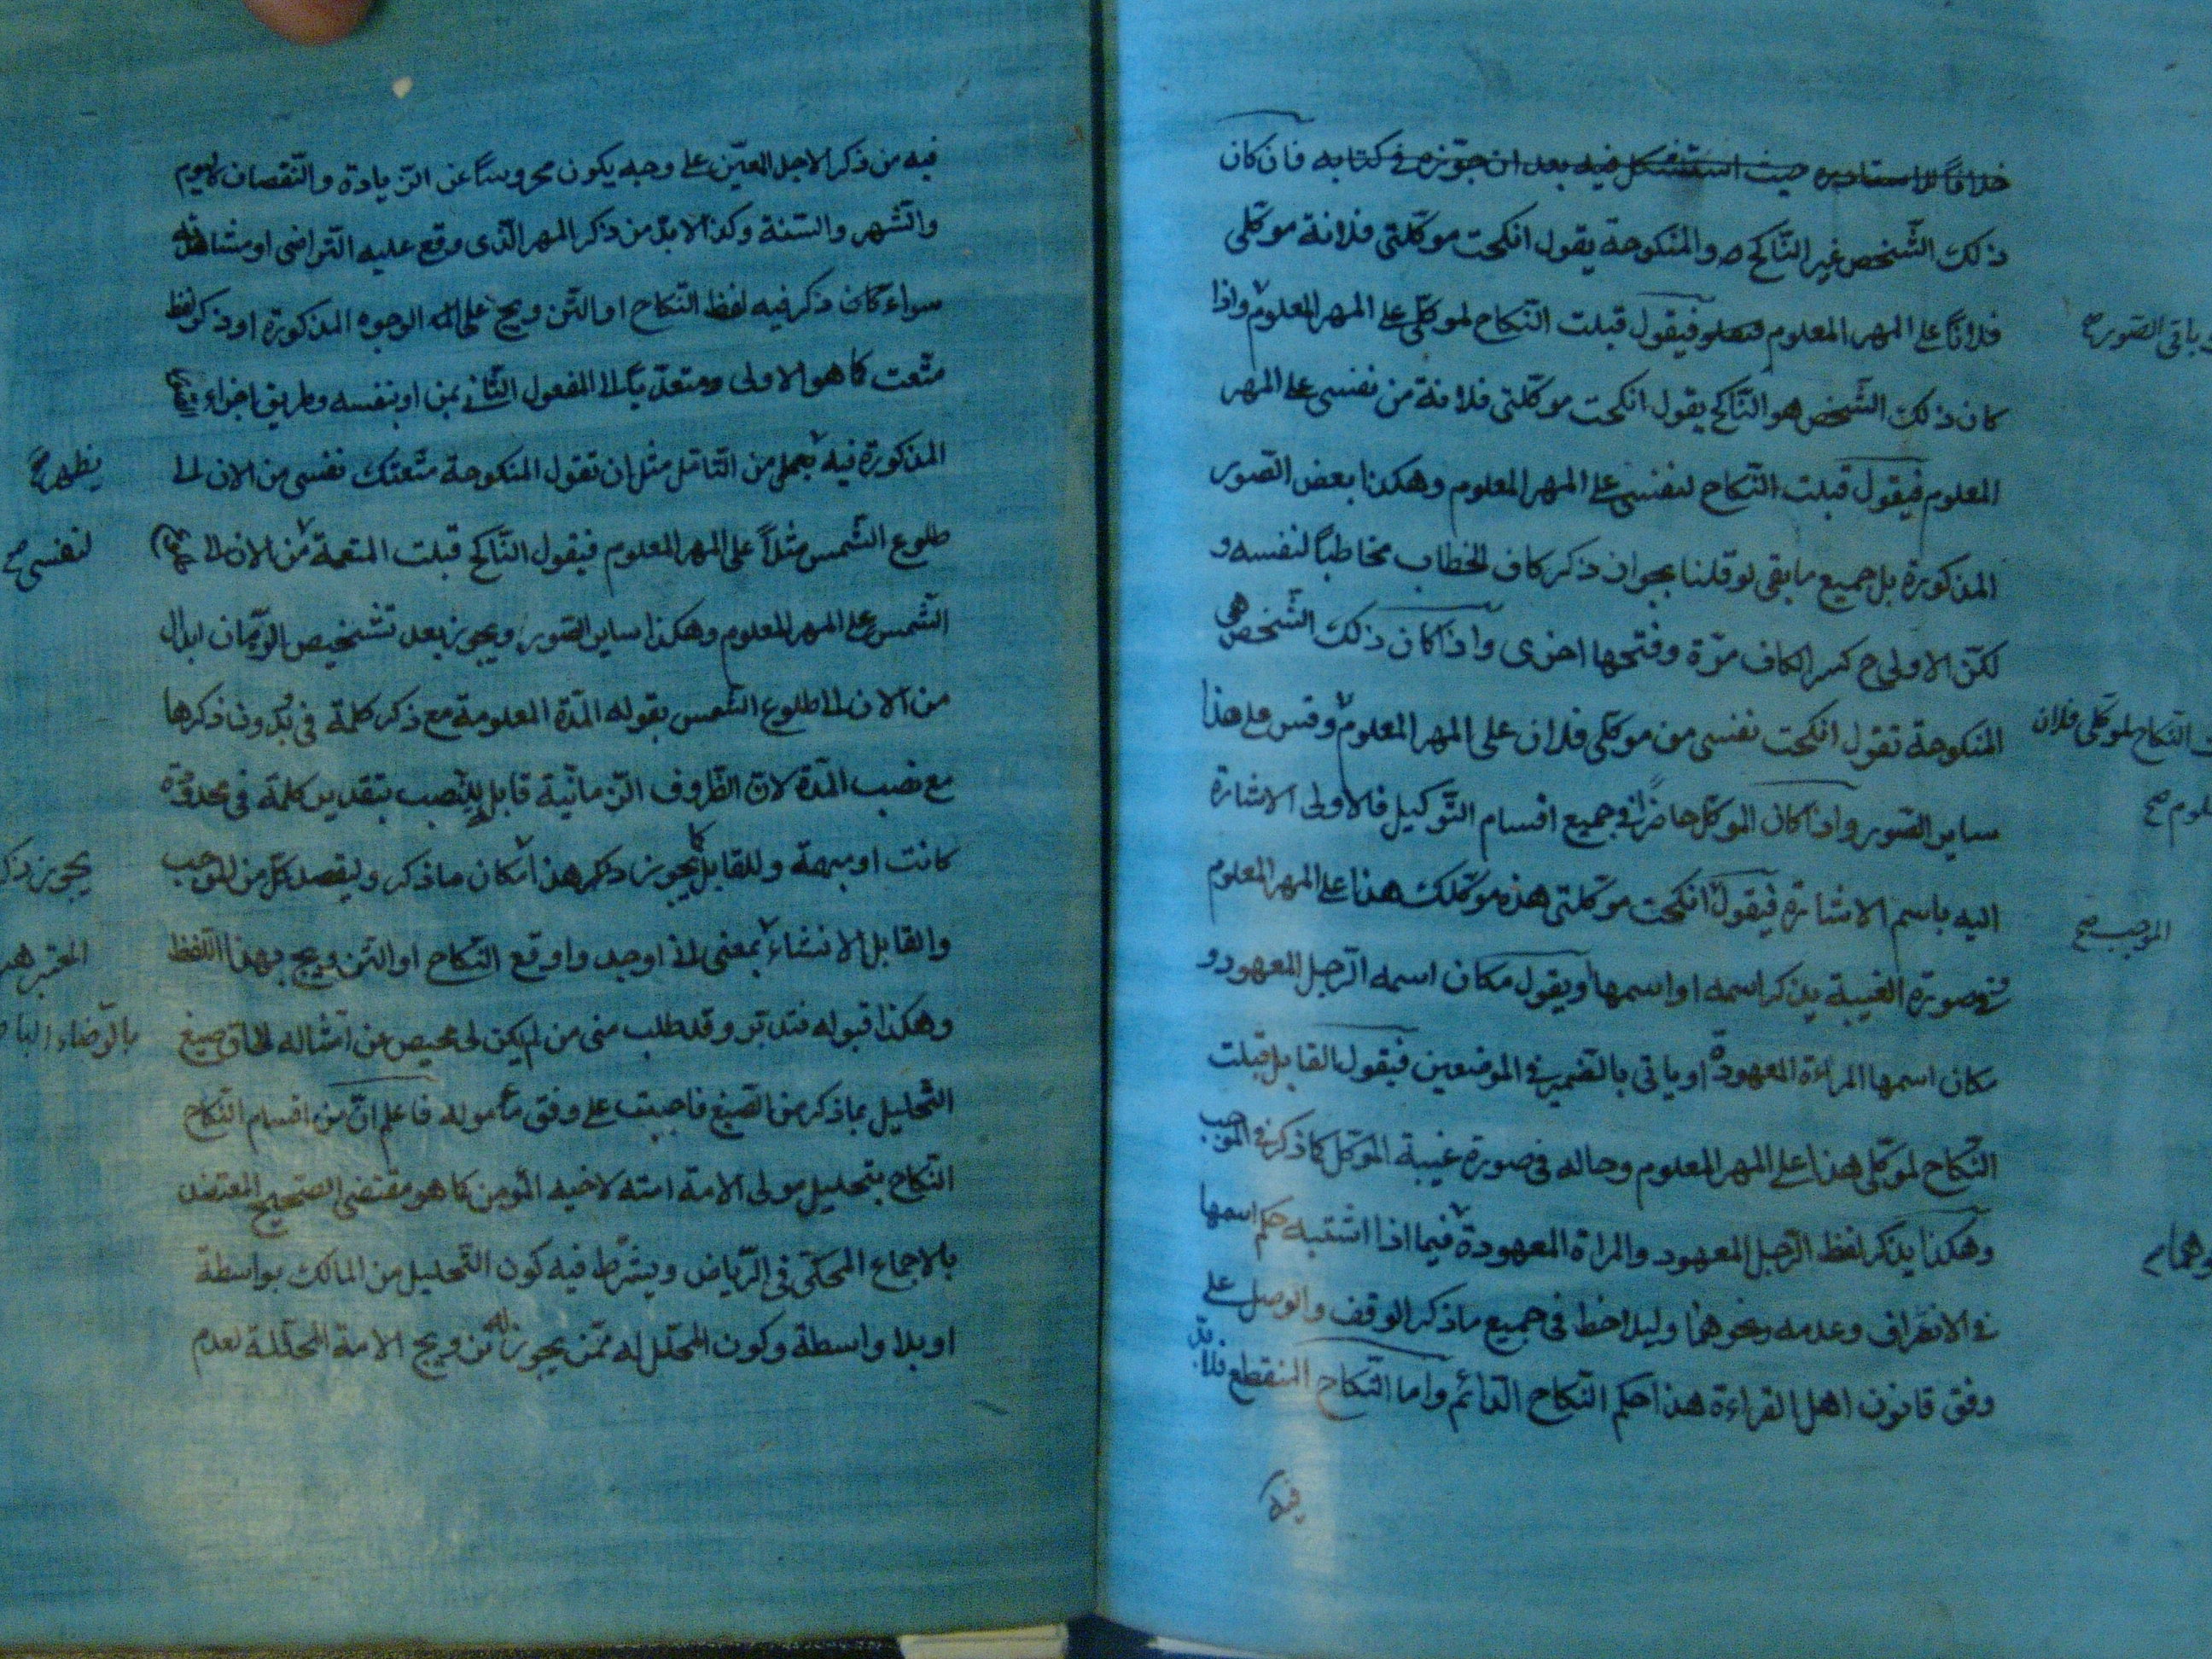 خلافاً للاستاد ره حيث استشكل فيه بعد ان جوّزه في كتابه فان كان
ذلك الشّخص غير النّاكح و المنكوحة يقول انكحت موكّلتي فلانة موكّلي
فلاناً على المهر المعلوم فيقول قبلت النّكاح لموكّلي على المهر المعلوم واذا
كان ذلك الشّخص هو النّاكح يقول انكحت موكّلتي فلانة من نفسي على المهر
المعلوم فيقول قبلت النّكاح لنفسي على المهر المعلوم وهكذا بعض الصّور
المذكورة بل جميع ما بقي لو قلنا بجواز ذكر كاف الخطاب مخاطباً لنفسه و
لكنّ الاولى ح كسر الكاف مرّة وفتحها اخرى واذا كان ذلك الشّخص هي
المنكوحة تقول انكحت نفسي من موكّلي فلان على المهر المعلوم وقس على هذا
ساير الصّور واذا كان الموكّل حاضراً في جميع اقسام التّوكيل فالاولى الاشارة
اليه باسم الاشارة فيقول انكحت موكّلتي هذه موكّلك هذا على المهر المعلوم
في صورة الغيبة يذكر اسمه او اسمها ويقول مكان اسمه الرّجل المعهود و
مكان اسمها المراءة المعهودة او ياتي بالضّمير في الموضعين فيقول القابل قبلت
النّكاح لموكّلي هذا على المهر المعلوم وحاله في صورة غيبة الموكّل كما ذكر في الموجب
وهكذا يذكر لفظ الرّجل المعهود والمراة المعهودة فيما اذا اشتبه حكم اسمها
في الانصراف وعدمه ونحوهما وليلاحظ في جميع ما ذكر الوقف والوصل على
وفق قانون اهل القراءة هذا حكم النّكاح الدّائم واما النّكاح المنقطع فلا بدّ
فيه
باقي الصّور صح
النّكاح لموكّلي فلان
الموجب صح
فيه من ذكر الاجل المعيّن على وجه يكون محروساً عن الزّيادة والنّقصان كاليوم
والشّهر والسّنة وكذا لا بدّ من ذكر المهر الّذي وقع عليه التّراضي او مشاهدته
سواء كان ذكر فيه لفظ النّكاح او التّزويج على الوجوه المذكورة او ذكر لفظ
متّعت كما هو الاولى ومتعدّياً الى المفعول الثّاني بمن او بنفسه وطريق اجراء
المذكورة فيه بعملي من التّامّل مثل ان تقول المنكوحة متّعتك نفسي من الان الى
طلوع الشّمس مثلاً على المهر المعلوم فيقول النّاكح قبلت المتعة من الان الى
الشّمس على المهر المعلوم وهكذا ساير الصّور ويجوز بعد تشخيص الزّمان ابدال
من الان الى طلوع الشّمس بقوله المدّة المعلومة مع ذكر كلمة في وبدون ذكرها
مع نصب المدّة لانّ الظّروف الزّمانيّة قابل للنّصب بتقدير كلمة في محدودة
كانت او مبهمة وللقابل يجوز ذكر هذا مكان ما ذكر وليقصد كلّ من الموجب
والقابل الانشاء بمعنى انّي اوجد واوقع النّكاح او التّزويج بهذا اللّفظ
وهكذا قبوله فتدبّر وقد طلب منّي من لم يكن لي محيص عن امتثاله الحاق صيغ
التّحليل بما ذكر من الصّيغ فاجبت على وفق مأموله فاعلم انّ من اقسام النّكاح
النّكاح بتحليل مولى الامة امته لاخيه المؤمن كما هو مقتضى الصّحيح المعتضد
بالاجماع المحكي في الرّياض ويشترط فيه كون التّحليل من المالك بواسطة
او بلا واسطة وكون المحلّل له ممّن يجوز له تزويج الامة المحلّلة لعدم
يظهر صح
لنفسي صح
يجوز ذكر
المعتبر هو
بالرّضاء